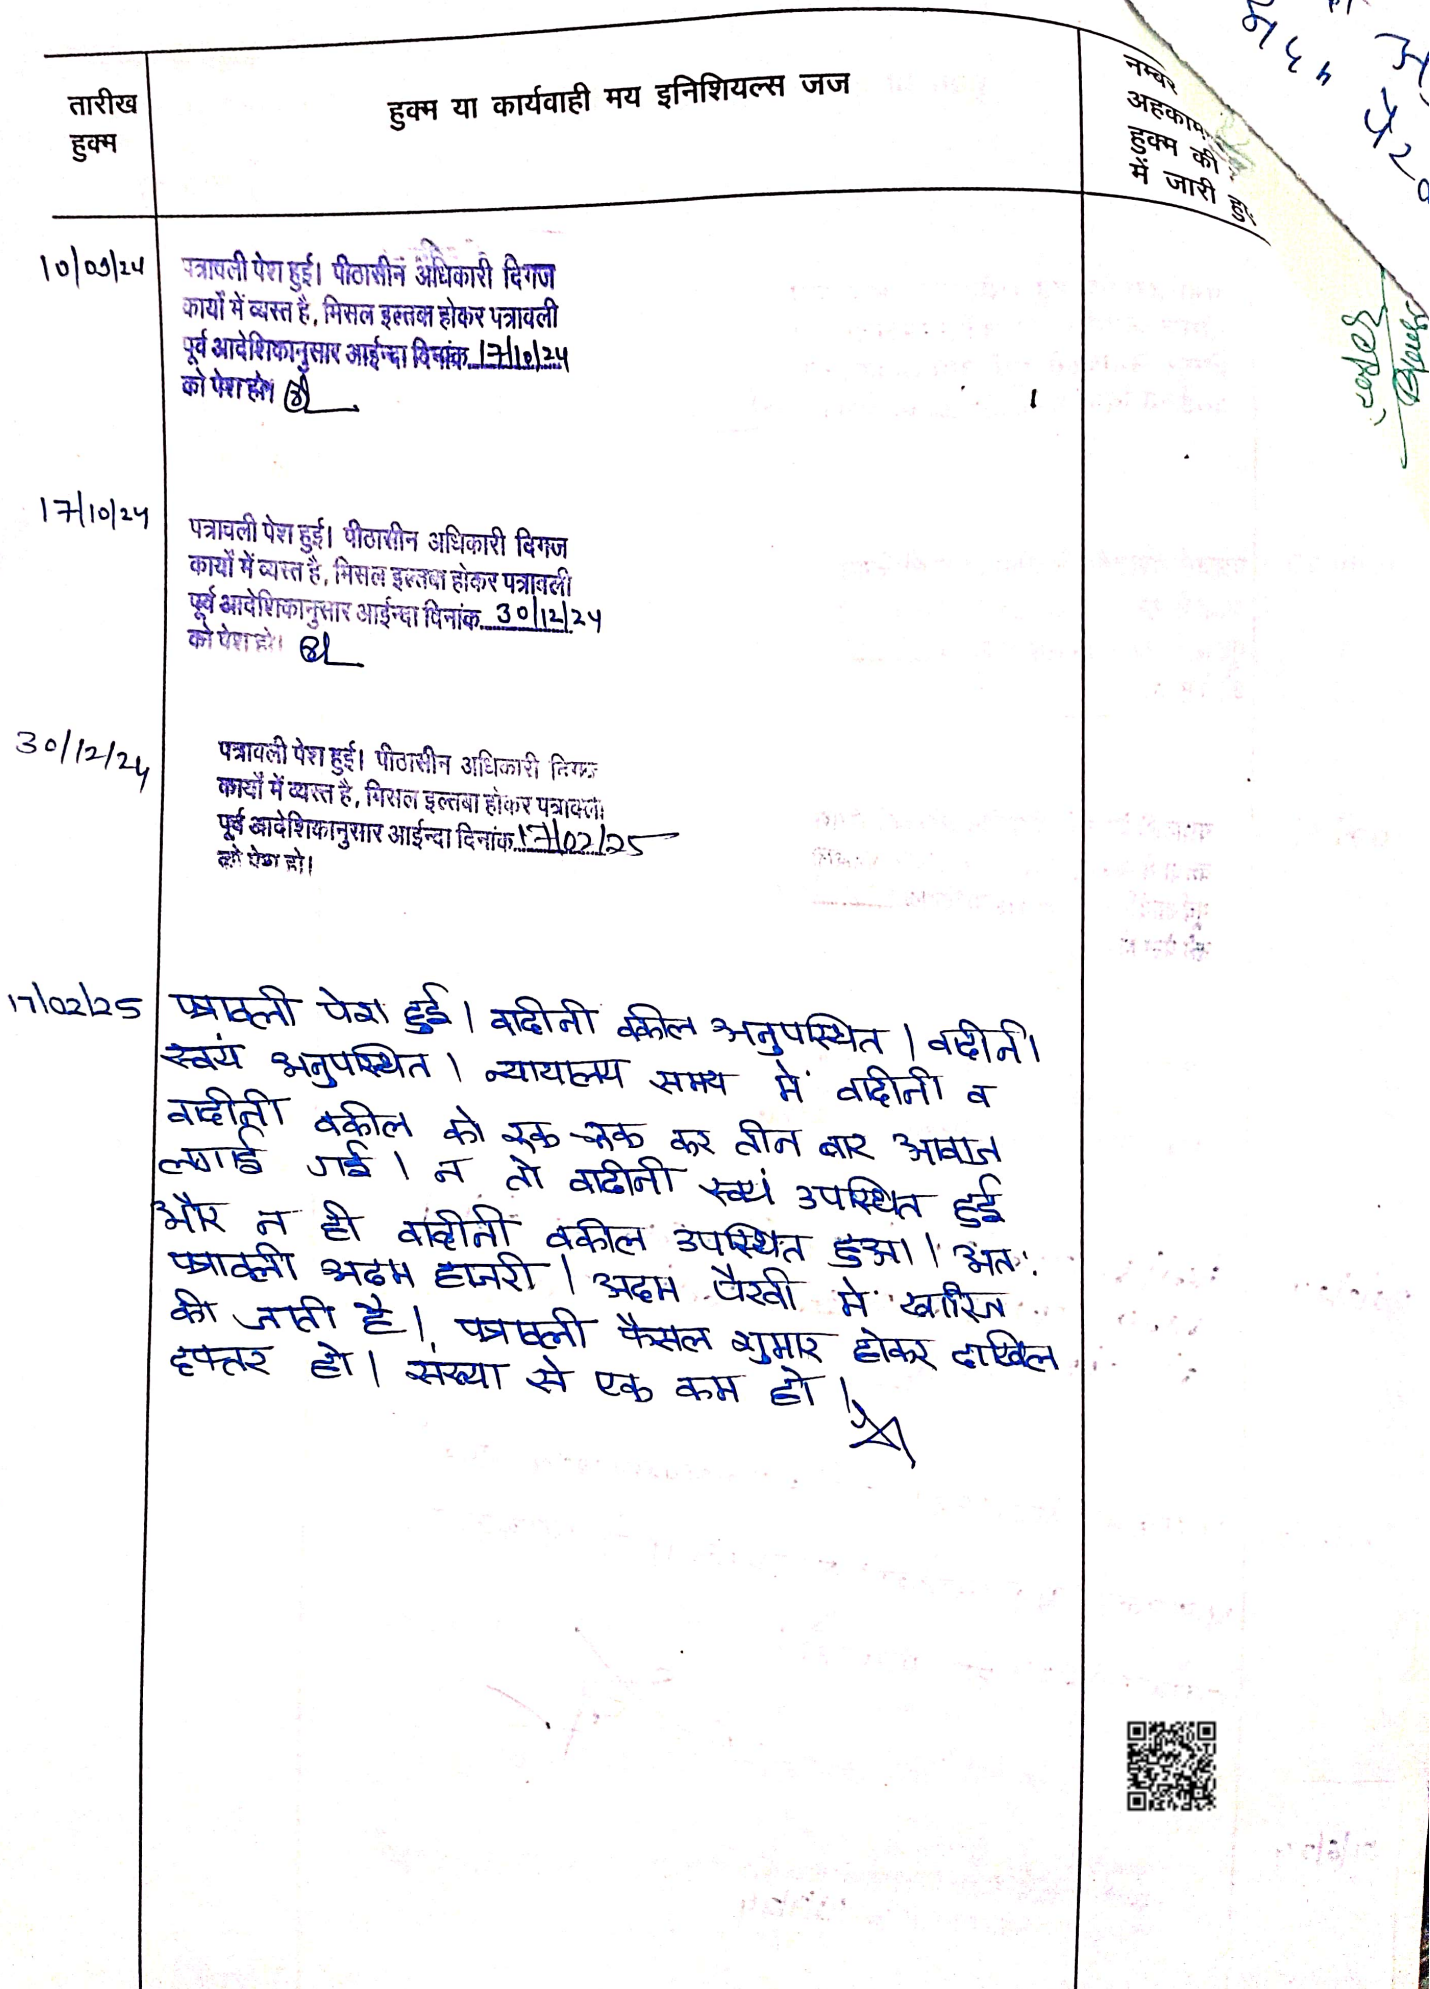 तारीख
हुक्म
हुक्म या कार्यवाही मय इनिशियल्स जज
नम्बर
अहकाम
हुक्म की
में जारी हु
10/09/24
पत्रावली पेश हुई। पीठासीन अधिकारी दिगज
कार्यों में व्यस्त है, मिसल इल्तवा होकर पत्रावली
पूर्व आदेशिकानुसार आईन्दा दिनांक 17/10/24
को पेश हो।
17/10/24
पत्रावली पेश हुई। पीठासीन अधिकारी दिगज
कार्यों में व्यस्त है, मिसल इल्तवा होकर पत्रावली
पूर्व आदेशिकानुसार आईन्दा दिनांक 30/12/24
को पेश हो।
30/12/24
पत्रावली पेश हुई। पीठासीन अधिकारी दिगज
कार्यों में व्यस्त है, मिसल इल्तबा होकर पत्रावली
पूर्व आदेशिकानुसार आईन्दा दिनांक 17/02/25
को पेश हो।
17/02/25
पत्रावली पेश हुई। वादीनी वकील अनुपस्थित। वादीनी
स्वयं अनुपस्थित। न्यायालय समय में वादीनी व
वादीनी वकील को एक-एक कर तीन बार आवाज
लगाई गई। न तो वादीनी स्वयं उपस्थित हुई
और न ही वादीनी वकील उपस्थित हुआ। अतः
पत्रावली अदम हाजरी। अदम पैरवी में खारिज
की जाती है। पत्रावली फैसल शुमार होकर दाखिल
दफ्तर हो। संख्या से एक कम हो।